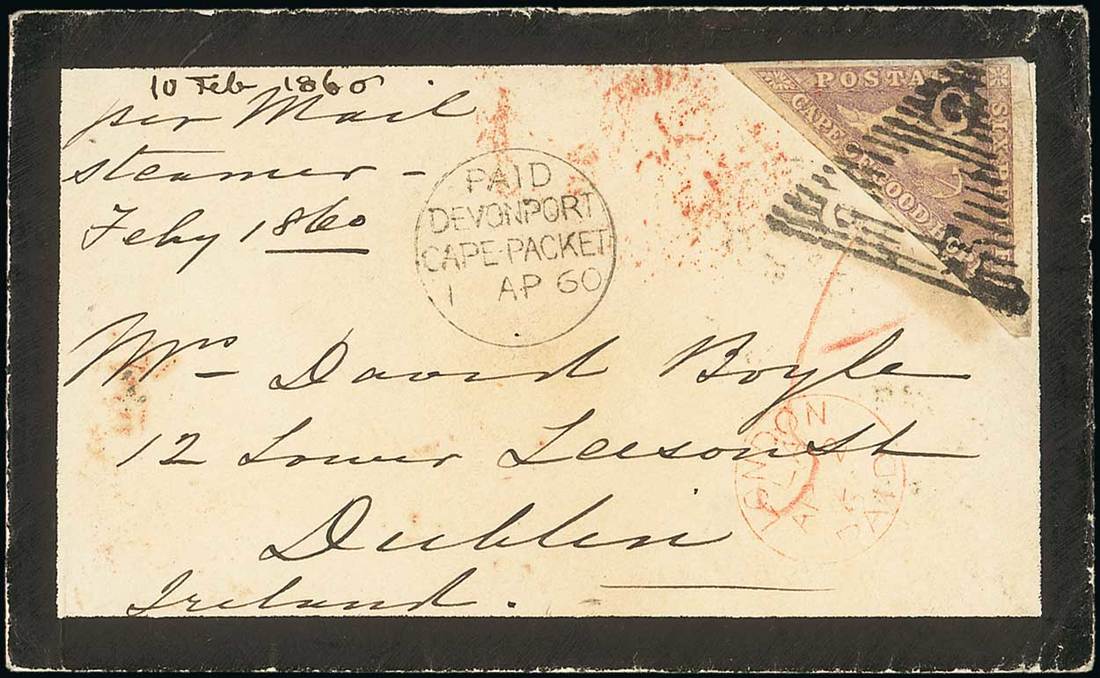 10 Feb 1860
per Mail
steamer -
Feby 1860
PAID
DEVONPORT
CAPE-PACKET
1 AP 60
POSTA
CAPE OF GOOD
SIX
Mrs David Boyle
12 Lower Leeson St
Dublin
Ireland.
LONDON
AP
60
PAID